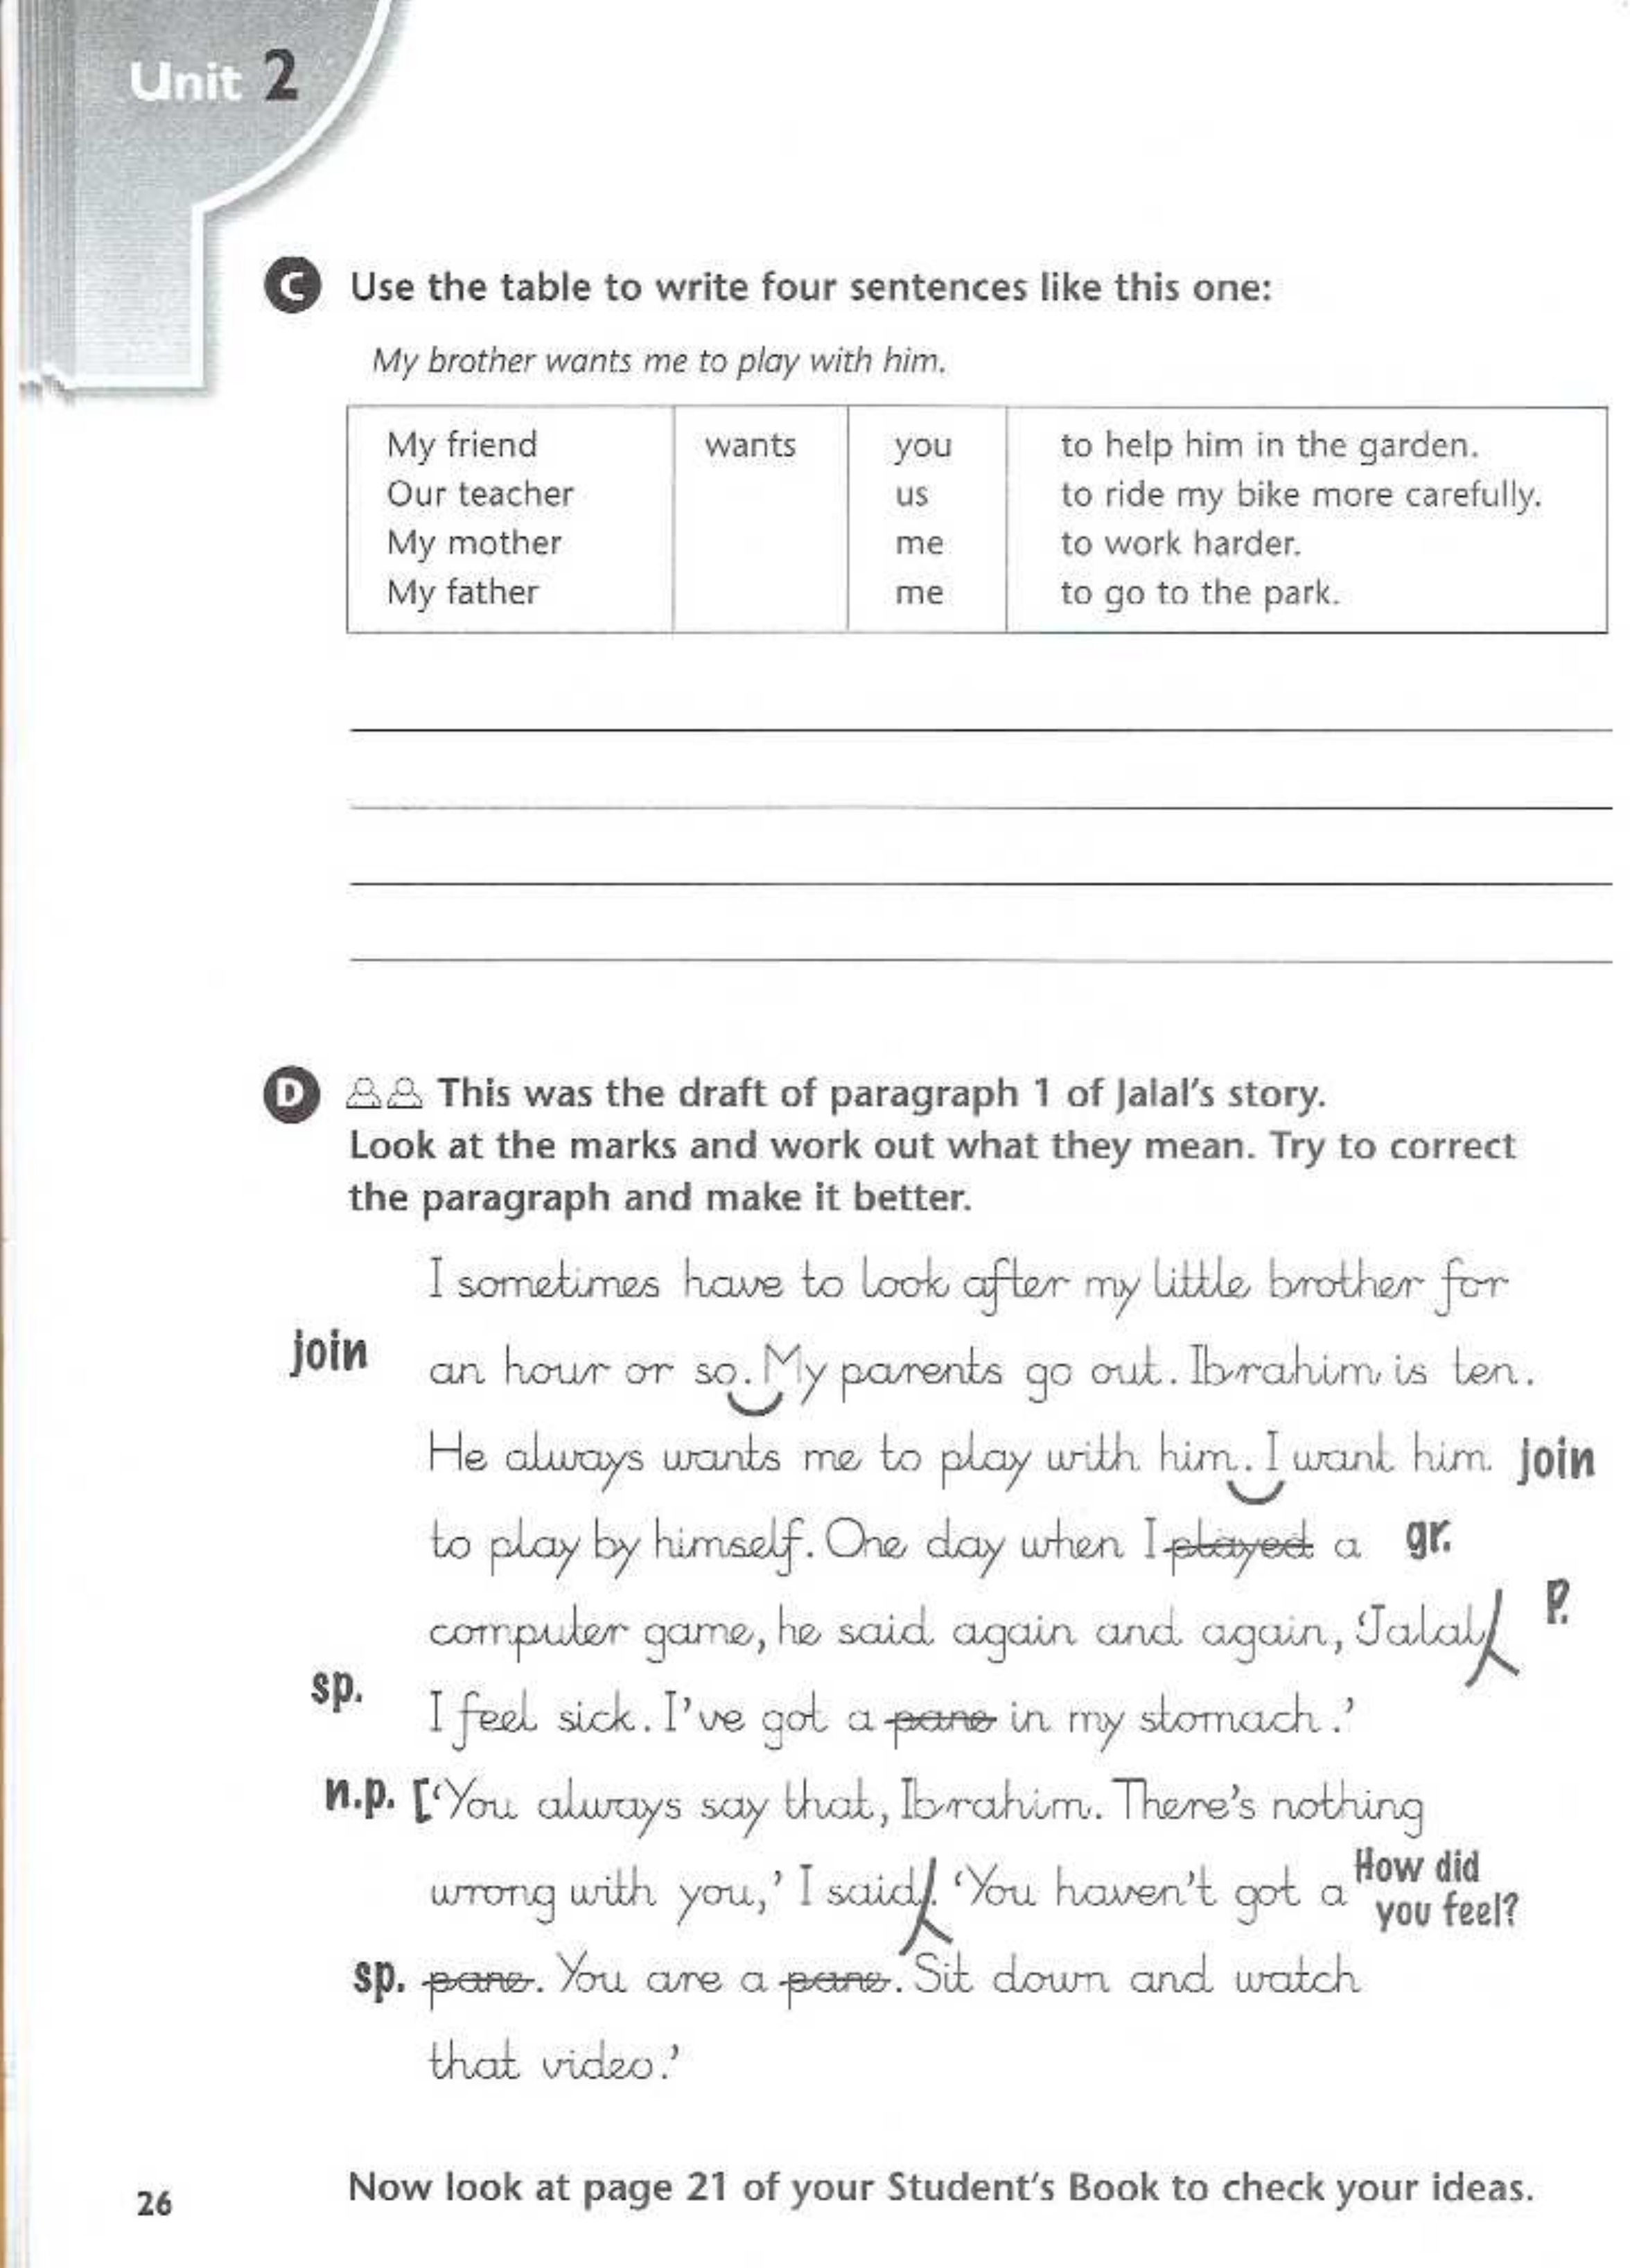 Unit 2
C Use the table to write four sentences like this one:
My brother wants me to play with him.
My friend wants you to help him in the garden.
Our teacher us to ride my bike more carefully.
My mother me to work harder.
My father me to go to the park.
D This was the draft of paragraph 1 of Jalal's story.
Look at the marks and work out what they mean. Try to correct
the paragraph and make it better.
I sometimes have to look after my little brother for
join an hour or so. My parents go out. Ibrahim is ten.
He always wants me to play with him. I want him join
to play by himself. One day when I played a gr.
computer game, he said again and again, 'Jalal P.
sp. I feel sick. I've got a pane in my stomach.'
n.p. ['You always say that, Ibrahim. There's nothing
wrong with you,' I said. 'You haven't got a How did
you feel?
sp. pane. You are a pane. Sit down and watch
that video.'
26 Now look at page 21 of your Student's Book to check your ideas.